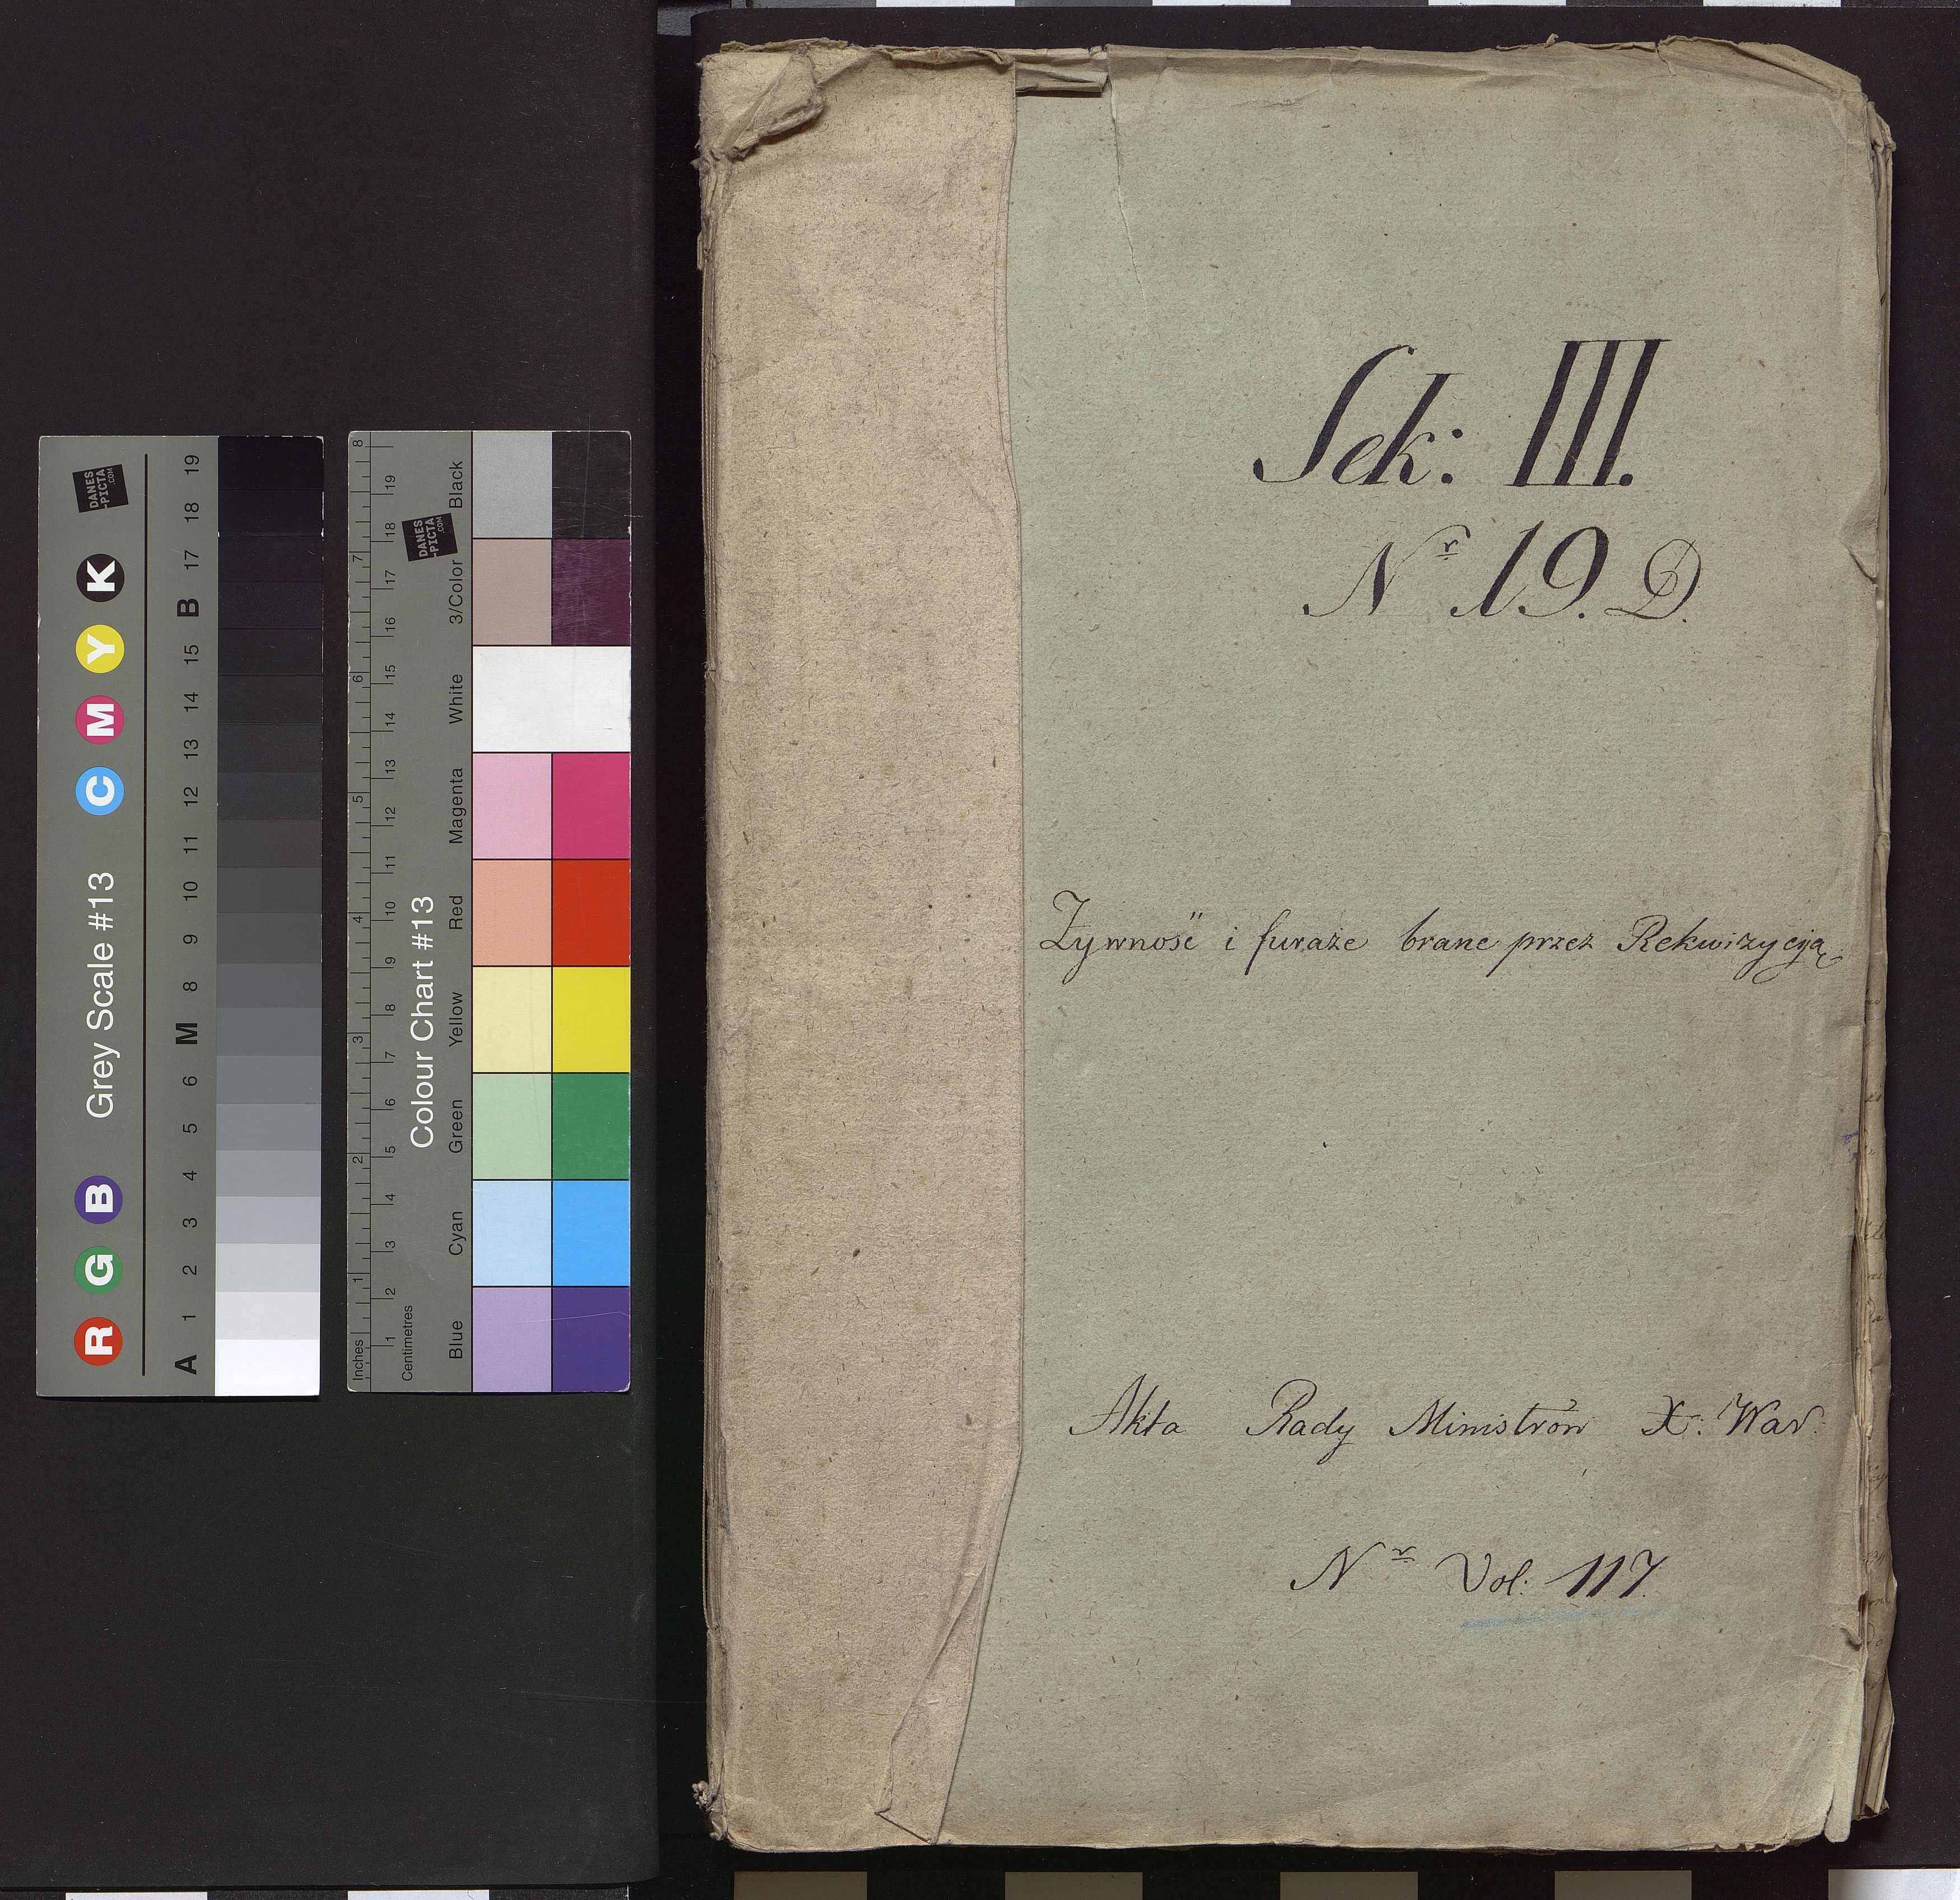 Sek: III.
Nr 19. D.
Żywność i furaże brane przez Rekwizycją
Akta Rady Ministrów X: War:
Nr Vol: 117.
Grey Scale #13
R G B C M Y K
A 1 2 3 4 5 6 M 8 9 10 11 12 13 14 15 B 17 18 19
DANES
-PICTA
.COM
Colour Chart #13
DANES
-PICTA
.COM
Blue Cyan Green Yellow Red Magenta White 3/Color Black
Inches 1 2 3 4 5 6 7 8
Centimetres 1 2 3 4 5 6 7 8 9 10 11 12 13 14 15 16 17 18 19